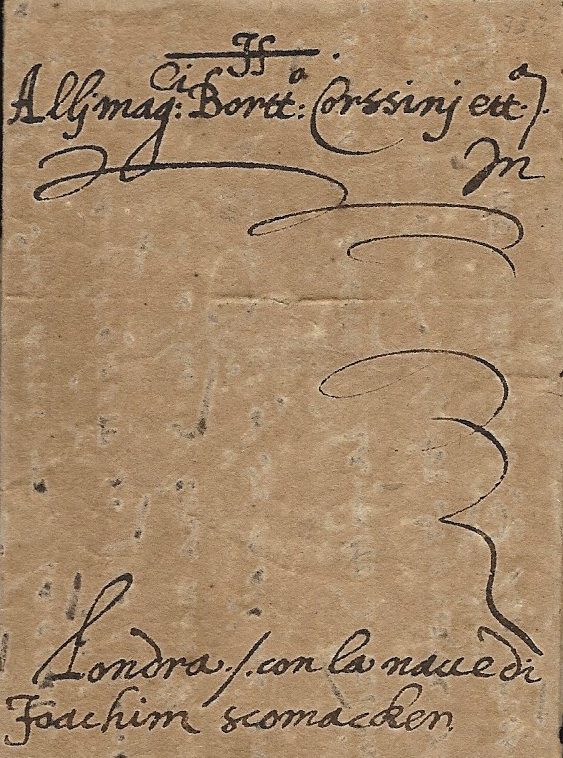 Jh
Allj mag:ci Bortt:o Corssinj ett:a
In
Londra ./. con la naue di
Joachim scomacken